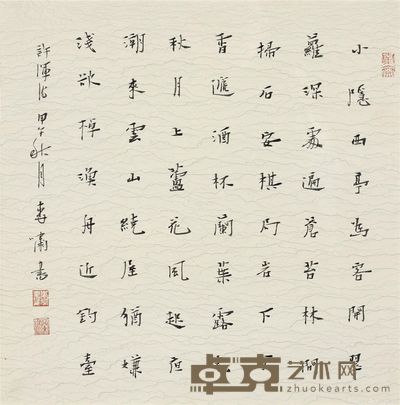 小隱西亭為客開翠
蘿深處遍蒼苔林間
掃石安棋局岩下
酒杯蘭葉露
秋月上蘆花風起夜
潮來雲山繞屋猶嫌
淺欲棹漁舟近釣臺
許渾詩甲午秋月李嘯書
卓克艺术网
www.zhuokearts.com